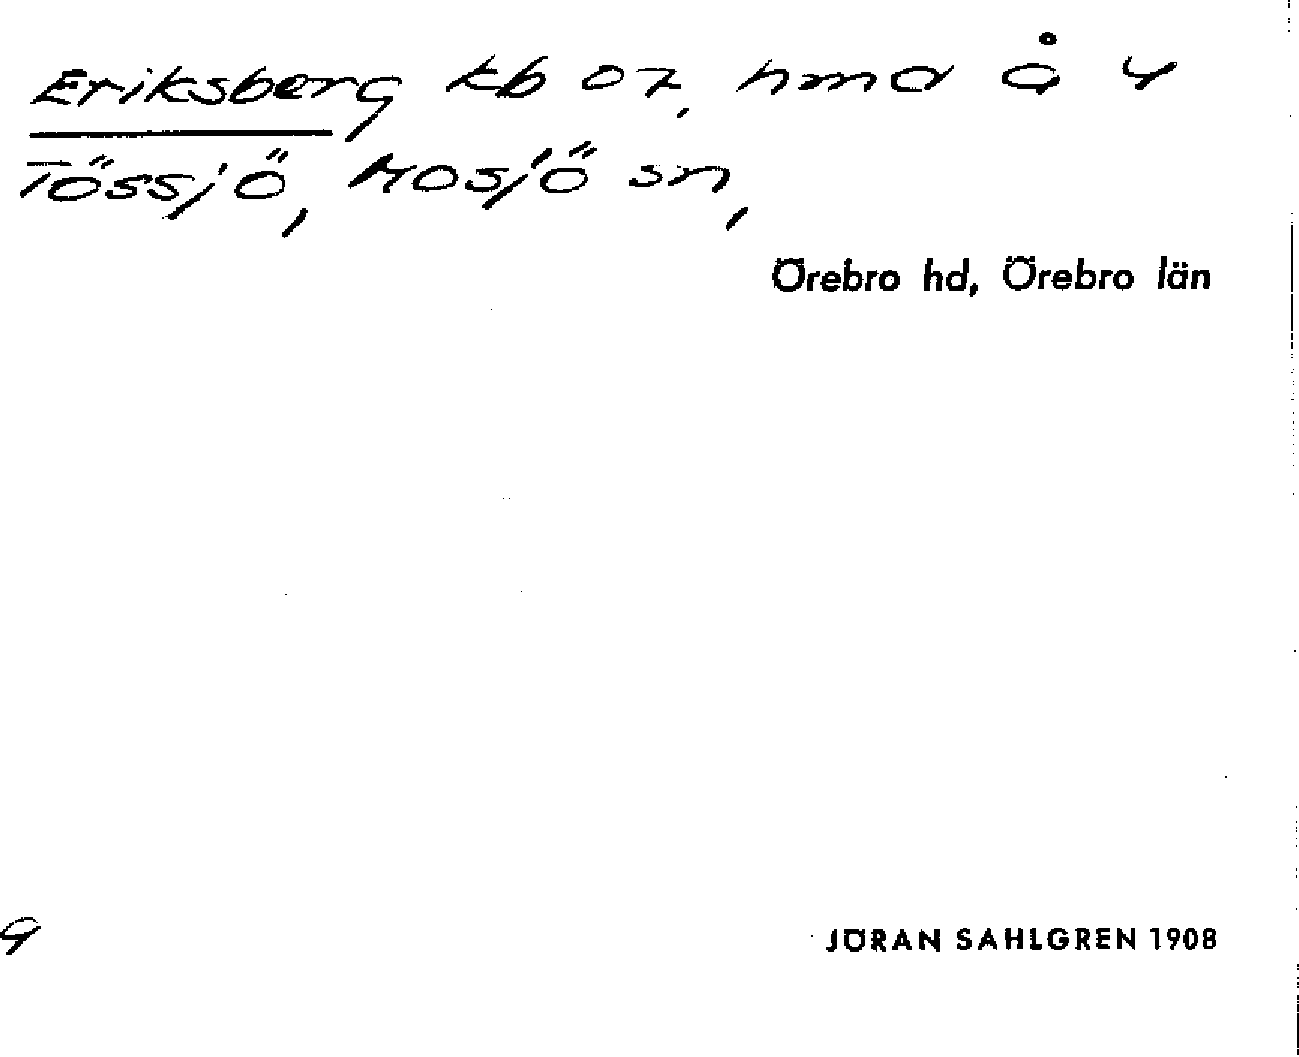 Eriksberg kb 07, hmd å 4
Tössjö, Mosjö sn,
Örebro hd, Örebro län
JÖRAN SAHLGREN 1908